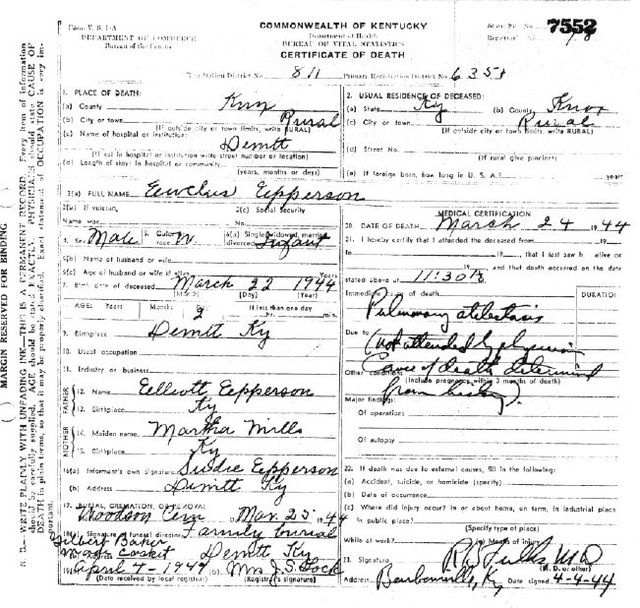 Form V. S. 1-A
DEPARTMENT OF COMMERCE
Bureau of the Census
COMMONWEALTH OF KENTUCKY
Department of Health
BUREAU OF VITAL STATISTICS
CERTIFICATE OF DEATH
7552
Registration District No. 811
Primary Registration District No. 6351
1. PLACE OF DEATH:
(a) County Knox
(b) City or town Rural
(If outside city or town limits, write RURAL)
(c) Name of hospital or institution:
Demitt
(If not in hospital or institution write street number or location)
(d) Length of stay: in hospital or community
(years, months or days)
2. USUAL RESIDENCE OF DECEASED:
(a) State Ky (b) County Knox
(c) City or town Rural
(If outside city or town limits, write RURAL)
(d) Street No.
(If rural give precinct)
(e) If foreign born, how long in U. S. A.? years
3(a) FULL NAME Epperson
3(b) If veteran,
Name war
3(c) Social Security
No.
4. Sex Male
5. Color or race W
6(a) Single, widowed, married, divorced Infant
6(b) Name of husband or wife
6(c) Age of husband or wife if alive Years
7. Birth date of deceased March 22 1944
(Month) (Day) (Year)
8. AGE: Years Months Days 2 If less than one day
hr. min.
9. Birthplace Demitt Ky
10. Usual occupation
11. Industry or business
FATHER
12. Name Epperson
13. Birthplace Ky
MOTHER
14. Maiden name Martha Mills
15. Birthplace Ky
16(a) Informant's own signature Sudie Epperson
(b) Address Demitt Ky
17. BURIAL, CREMATION, OR REMOVAL
Woodson Cem Mar. 25 1944
18(a) Signature of funeral director Family burial
Gilbert Baker
made casket Demitt Ky
19(a) April 4-1944 (b) Mrs J.S. Lock
(Date received by local registrar) (Registrar's signature)
MEDICAL CERTIFICATION
20. DATE OF DEATH March 24 1944
21. I hereby certify that I attended the deceased from 19
to 19, that I last saw h alive on
19 and that death occurred on the date
stated above at 11:30 A
Immediate cause of death
DURATION
Pulmonary atelectasis
Due to
(not attended by physician
Cause of death determined
from history)
Other conditions
(Include pregnancy within 3 months of death)
Major findings:
Of operations
Of autopsy
22. If death was due to external causes, fill in the following:
(a) Accident, suicide, or homicide (specify)
(b) Date of occurrence
(c) Where did injury occur? in or about home, on farm, in industrial place
In public place?
(Specify type of place)
While at work? (e) Means of injury
23. Signature M.D.
(M. D. or other)
Address Barbourville, Ky Date signed 4-4-44
MARGIN RESERVED FOR BINDING
N. B.—WRITE PLAINLY WITH UNFADING INK—THIS IS A PERMANENT RECORD. Every item of information
should be carefully supplied. AGE should be stated EXACTLY. PHYSICIANS should state CAUSE OF
DEATH in plain terms, so that it may be properly classified. Exact statement of OCCUPATION is very im-
portant.